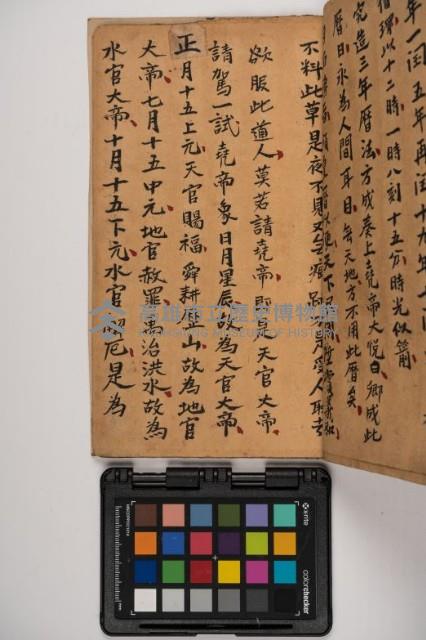 年一閏五年再閏十九年
循環以十二時一時八刻十五分時光似箭
究造三年曆法方成奏上堯帝大悅曰卿成此
曆日永為人間耳目無天地方不用此曆矣
不料此草是夜不見又無痕跡人取去
欲服此道人莫若請堯帝即是天官大帝
請駕一試堯帝象日月星辰故為天官大帝
正月十五上元天官賜福舜耕歷山故為地官
大帝七月十五中元地官赦罪禹治洪水故為
水官大帝十月十五下元水官解厄是為
高雄市立歷史博物館
KAOHSIUNG MUSEUM OF HISTORY
x-rite
colorchecker